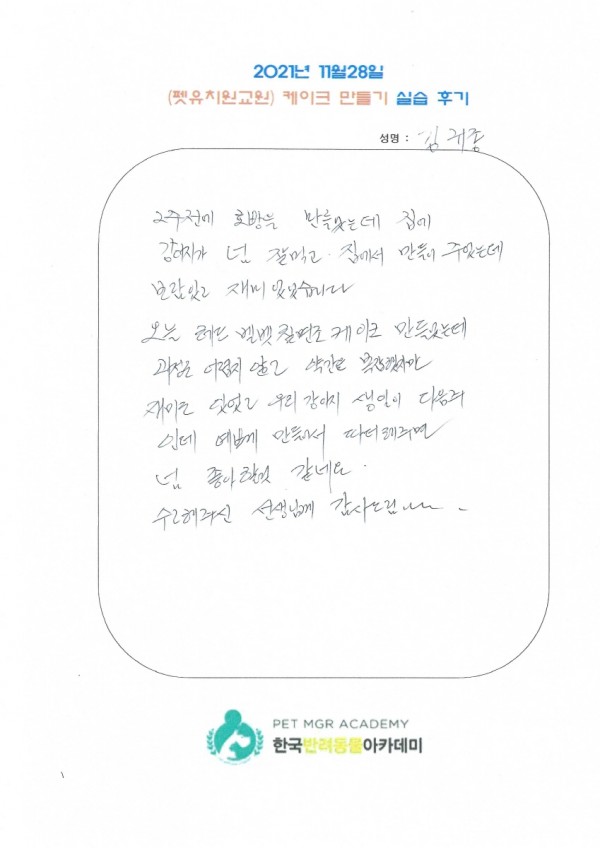 2021년 11월28일
(펫유치원교원) 케이크 만들기 실습 후기
성명 : 김귀종
2주전에 호빵을 만들었는데 집에
강아지가 넘 잘먹고. 집에서 만들어 주었는데
보람있고 재미있었습니다
오늘 레드벨벳 컵 케이크 만들었는데
과정은 어렵지 않고 약간은 복잡했지만
재미도 있었고 우리 강아지 생일이 다음주
인데 예쁘게 만들어서 파티해주면
넘 좋아할것 같네요.
수고해주신 선생님께 감사드림~~.
PET MGR ACADEMY
한국반려동물아카데미